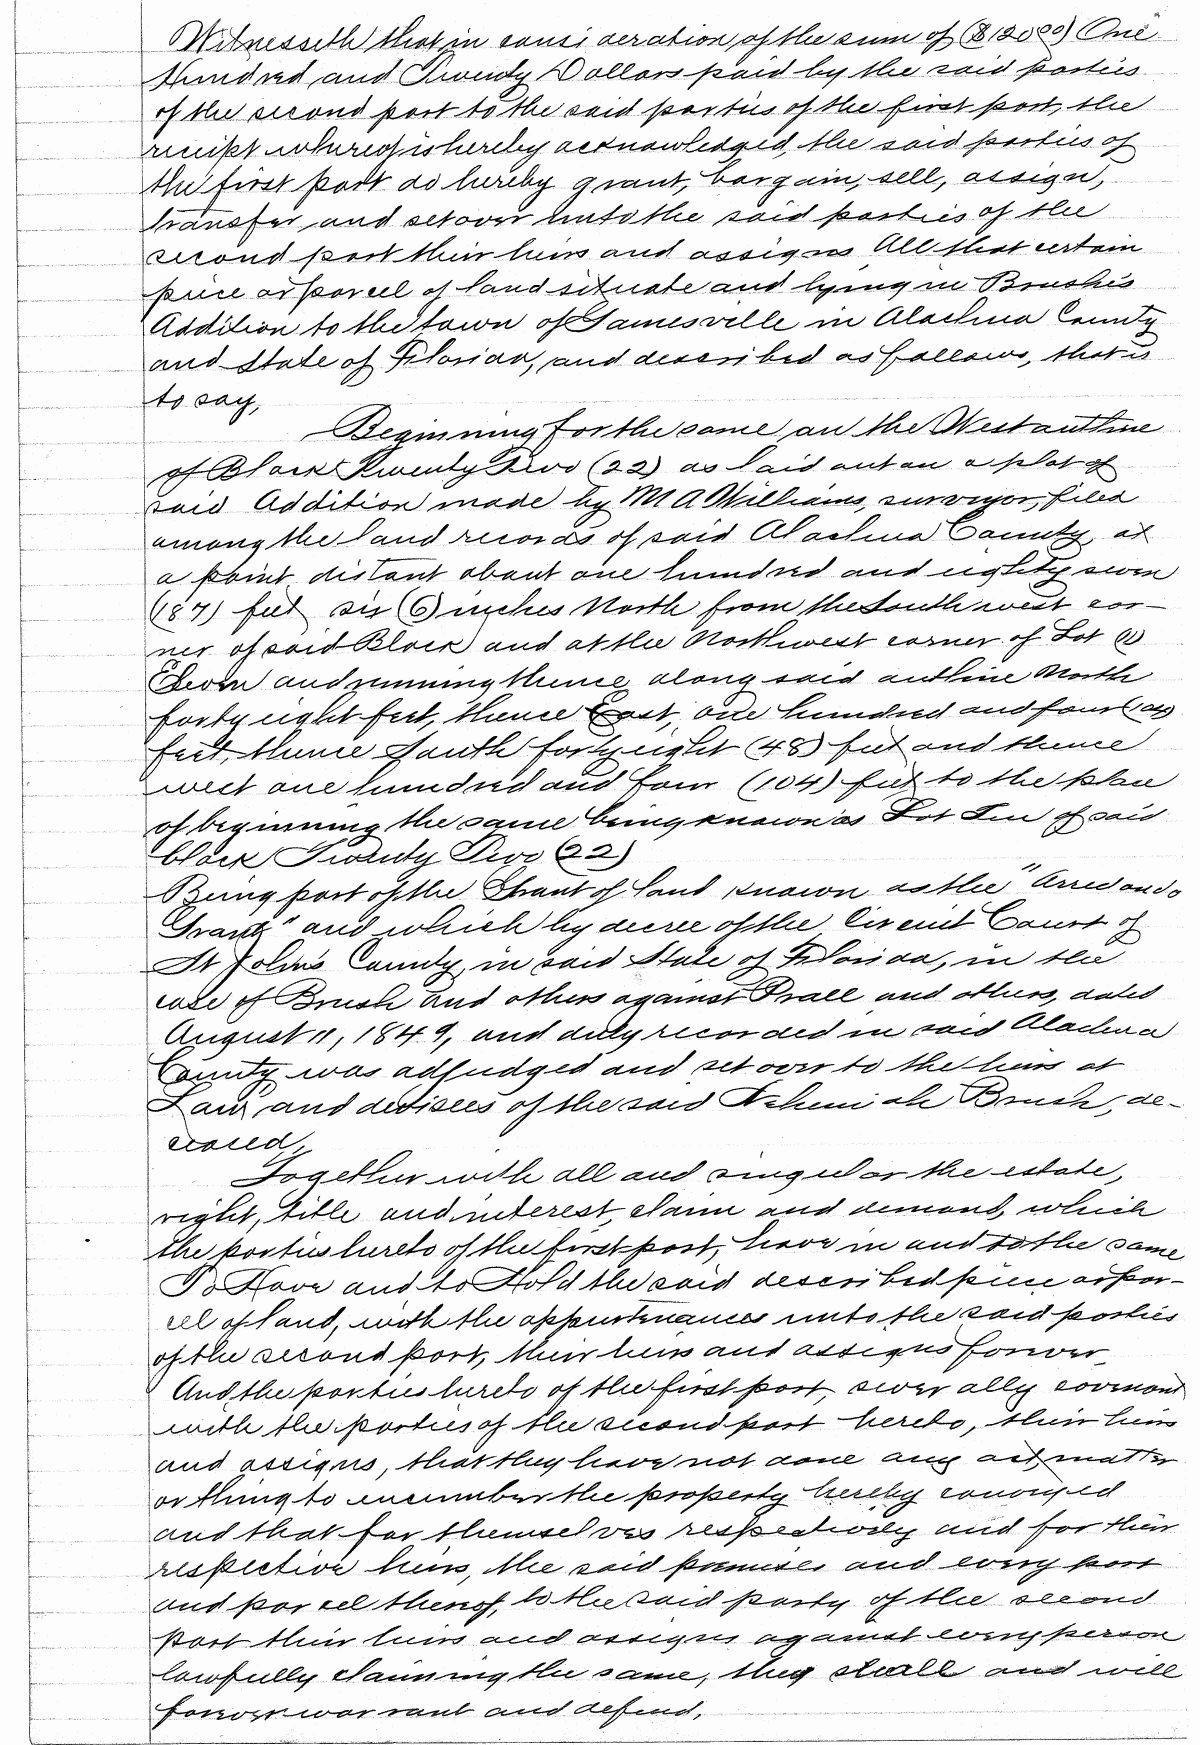 Witnesseth that in consideration of the sum of ($120.00) One
Hundred and Twenty Dollars paid by the said parties
of the second part to the said parties of the first part, the
receipt whereof is hereby acknowledged, the said parties of
the first part do hereby grant, bargain, sell, assign,
transfer and set over unto the said parties of the
second part their heirs and assigns All that certain
piece or parcel of land situate and lying in Brush's
Addition to the town of Gainesville in Alachua County
and State of Florida, and described as follows, that is
to say,
Beginning for the same on the West outline
of Block Twenty Two (22) as laid out on a plat of
said Addition made by M A Williams, surveyor, filed
among the land records of said Alachua County, at
a point distant about one hundred and eighty seven
(187) feet six (6) inches North from the South west cor-
ner of said Block and at the Northwest corner of Lot (11)
Eleven and running thence along said outline North
forty eight feet, thence East, one hundred and four (104)
feet, thence South forty eight (48) feet and thence
west one hundred and four (104) feet to the place
of beginning the same being known as Lot Ten of said
block Twenty Two (22)
Being part of the Grant of land known as the "Arredondo
Grant" and which by decree of the Circuit Court of
St Johns County, in said State of Florida, in the
case of Brush and others against Prall and others, dated
August 11, 1849, and duly recorded in said Alachua
County was adjudged and set over to the heirs at
Law and devisees of the said Nehemiah Brush, de-
ceased,
Together with all and singular the estate,
right, title and interest, claim and demand, which
the parties hereto of the first part, have in and to the same
To Have and to Hold the said described piece or par-
cel of land, with the appurtenances unto the said parties
of the second part, their heirs and assigns forever
And the parties hereto of the first part, severally covenant
with the parties of the second part hereto, their heirs
and assigns, that they have not done any act, matter
or thing to encumber the property hereby conveyed
and that for themselves respectively and for their
respective heirs, the said premises and every part
and parcel thereof, to the said party of the second
part their heirs and assigns against every person
lawfully claiming the same, they shall and will
forever warrant and defend.